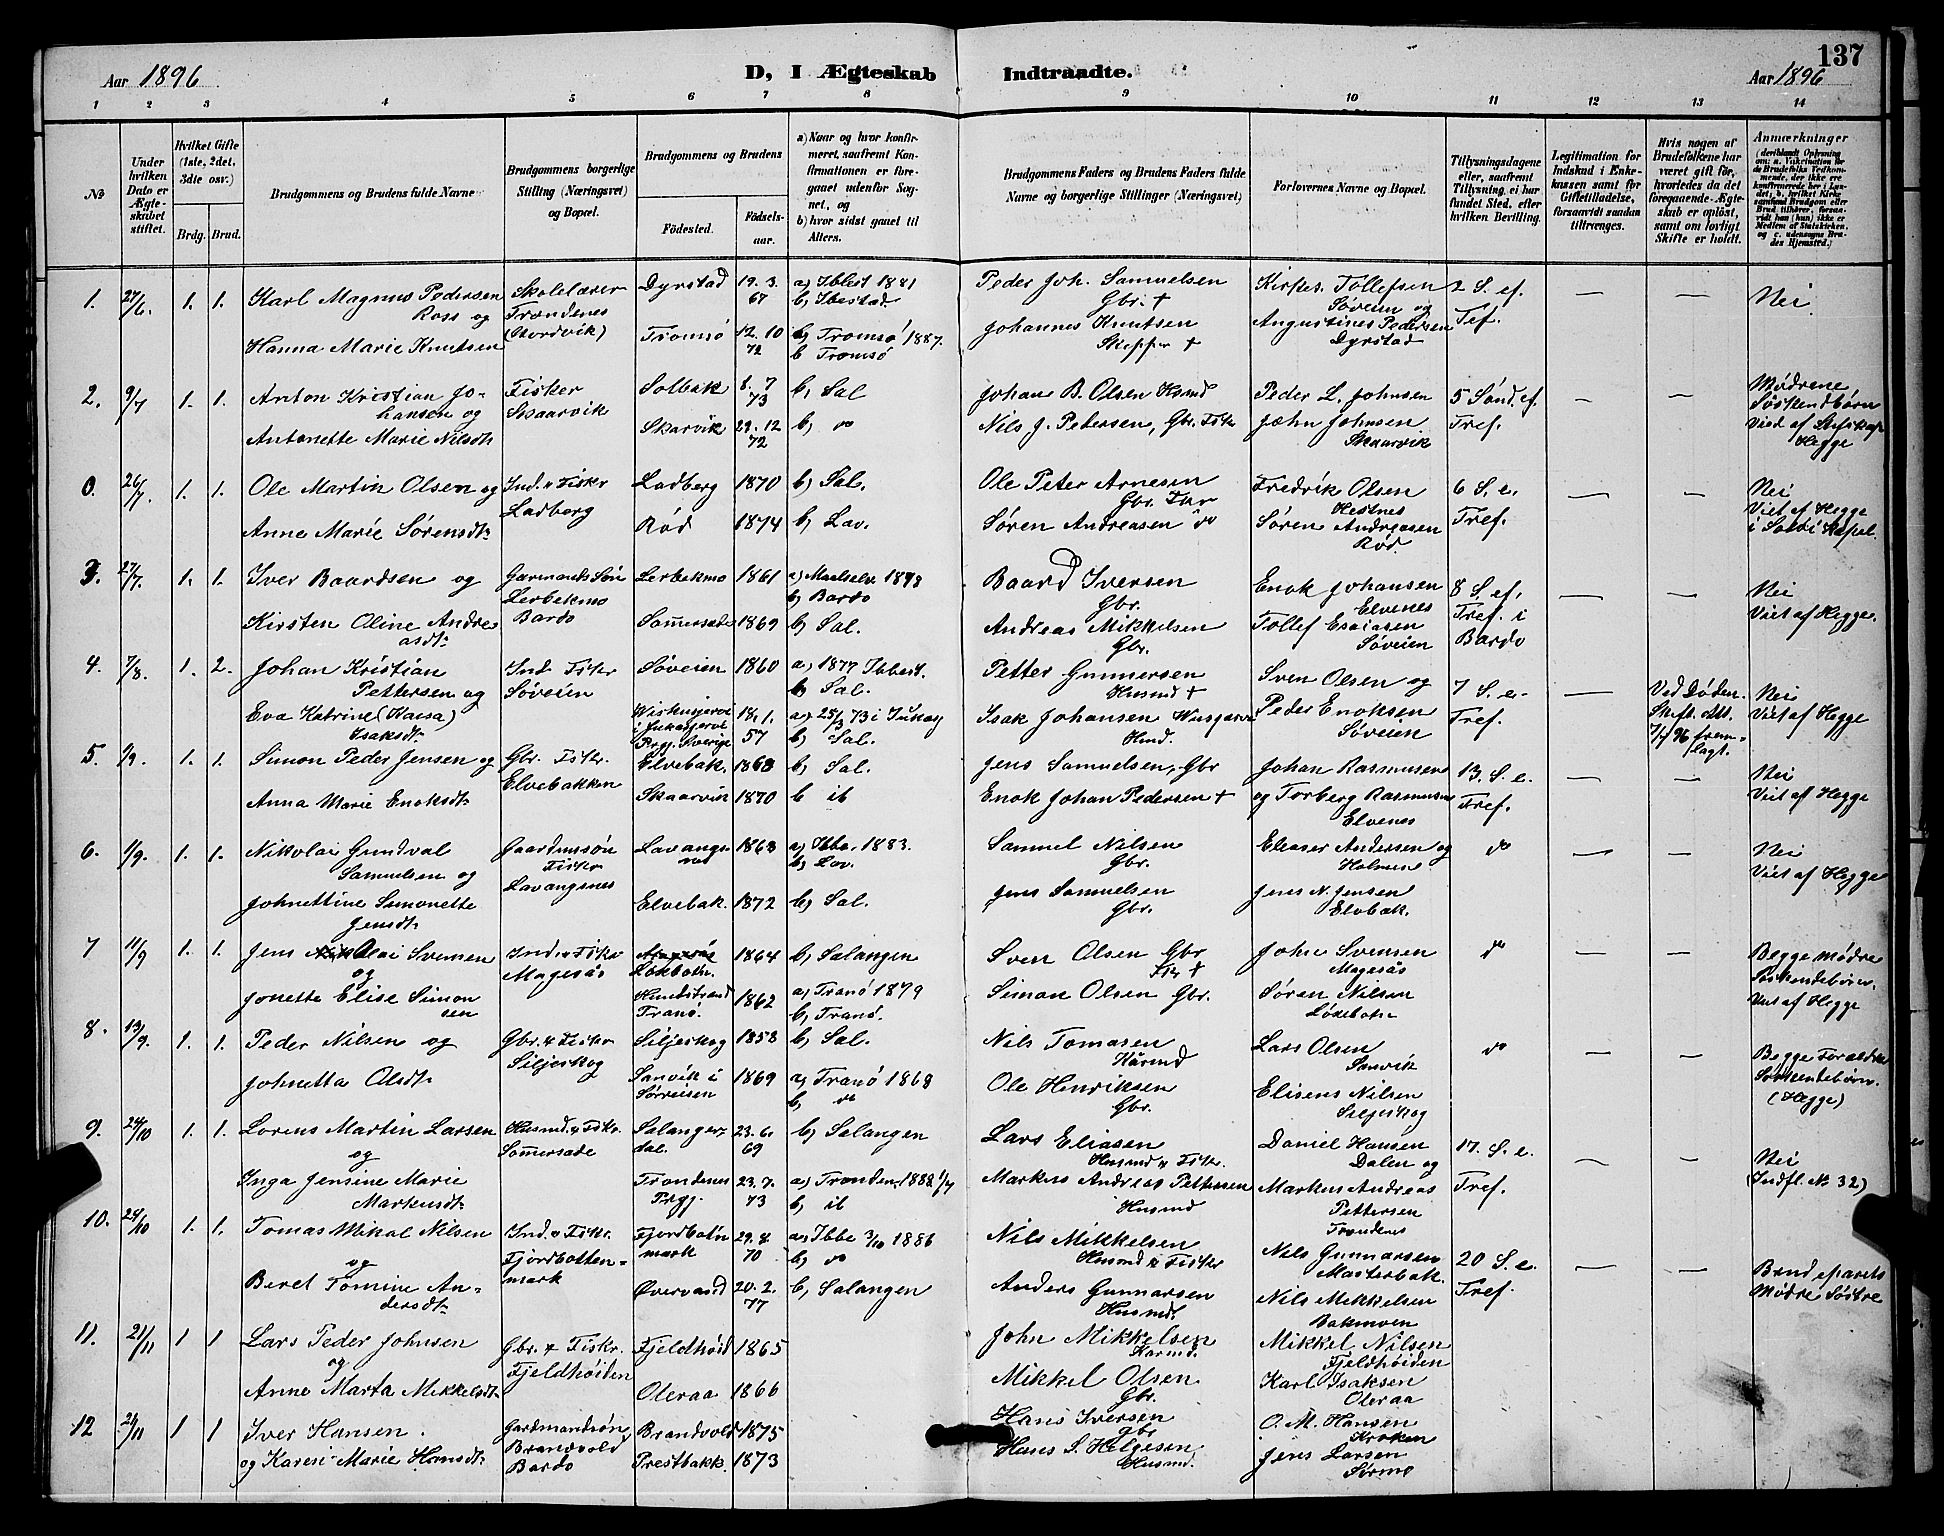 137
Aar 1896
D, I Ægteskab Indtraadte.
Aar 1896
1 2 3 4 5 6 7 8 9 10 11 12 13 14
No
Under hvilken Dato er Ægteskabet stiftet.
Hvilket Gifte (1ste, 2det, 3die osv.)
Brdg. Brud.
Brudgommens og Brudens fulde Navne
Brudgommens borgerlige Stilling (Næringsvei) og Bopæl.
Brudgommens og Brudens
Fødested. Fødselsaar.
a) Naar og hvor konfirmeret, saafremt Konfirmationen er foregaaet udenfor Sognet, og
b) hvor sidst gaaet til Alters.
Brudgommens Faders og Brudens Faders fulde Navne og borgerlige Stillinger (Næringsvei)
Forlovernes Navne og Bopæl.
Tillysningsdagene eller, saafremt Tillysning ei har fundet Sted, efter hvilken Bevilling.
Legitimation for Indskud i Enkekassen samt for Giftetilladelse, forsaavidt saadan tiltrænges.
Hvis nogen af Brudefolkene har været gift før, hvorledes da det foregaaende Ægteskab er opløst, samt om lovligt Skifte er holdt.
Anmærkninger
1. 27/6. 1. 1. Karl Magnus Pedersen Ross og
Hanna Marie Knutsen
Skolelærer Trondenes (Stordvik)
Dyrstad 19.3.67
Tromsø 12.10 72
a) Ibbest 1881
b, Ibestad
b) Tromsø 1887.
b Tromsø
Peder Joh. Samuelsen Gbr. †
Johannes Knutsen Skipper †
Kirstes. Tollefsen Søveien og
Augustines Pedersen Dyrstad
2 S. ef. Tef.
— — Nei
2. 9/7 1. 1. Anton Kristian Johansen og
Antonette Marie Nilsdt.
Fisker Skaarvik
Solbak 8.7 73
Skarvik 29.12 72
b, Sal
b, do
Johan B. Olsen Husmd
Nils J. Pedersen, Gbr. Fiskr
Peder L. Johnsen
John Johnsen Skaarvik
5 Sønd. ef. Tref.
— — Mødrene Søskendbørn Viet af Hegge
0. 26/7. 1. 1. Ole Martin Olsen og
Anne Marie Sörensdt.
Ind. & Fiskr Ladberg
Ladberg 1870
Rød 1874
b) Sal.
b, Lav.
Ole Peter Arnesen Gbr. Fkr
Søren Andreasen do
Fredrik Olsen Hestnes
Søren Andreasen Rød.
6 S. e. Tref.
— — Nei
Viet af Hegge i Salvi Kapel.
3. 27/7. 1. 1. Iver Baardsen og
Kirsten Oline Andreasdt.
Garmands Søn Lerbekmo Bardo
Lerbekmo 1861
Sommersæde 1869
a) Maalselv 1878
b) Bardo
b) Sal.
Baard Iversen Gbr.
Andreas Mikkelsen Gbr.
Enok Johansen Elvenes
Tollef Esaiasen Søveien
8 S. ef. Tref. i Bardo
— — Nei
Viet af Hegge.
4. 7/8. 1. 2. Johan Kristian Pettersen og
Eva Katrine (Kaisa) Isaksdt.
Ind. Fiskr Søveien
Søveien 1860
i Jukasjervi Prgj. Sverige 18.1.57
a) 1877 Ibbest.
b, Sal.
b) Sal.
Petter Gunnersen Husmd †
Isak Johansen
Sven Olsen og
Peder Enoksen Søveien
7 S. e. Tref.
— Ved Døden. Skift. Att. 7/7 96 fremlagt.
Nei
Viet af Hegge
5. 1/9. 1. 1. Simon Peder Jensen og
Anna Marie Enoksdt.
Gbr. Fiskr. Elvebakken
Elvebak. 1868
Skaarvik 1870
b, Sal.
b ib
Jens Samuelsen, Gbr
Enok Johan Pedersen †
Johan Rasmusen
og Torberg Rasmusen Elvenes
13. S. e. Tref.
— — Nei
Viet af Hegge
6. 1/9. 1. 1. Nikolai Gundval Samuelsen og
Johnettine Simonette Jensdt.
Gaardmssøn Fiskr Lavangsnes
Lavangsnes 1863
Elvebak. 1872
a) Ibbe. 1883.
b) Lav.
b) Sal.
Samuel Nilsen Gbr.
Jens Samuelsen Gbr.
Eliaser Andersen og Holmen
Jens N. Jensen Elvbak.
do — — Nei
Viet af Hegge
7 11/9 1. 1. Jens Nikolai Svensen og
Jonette Elise Simonsen
Ind. & Fiskr Magesås
Løkbotn. 1864
Hundstrand Tranø. 1862
b, Salangen
a) Tranø 1879
b, Tranø.
Sven Olsen Gbr Fkr †
Simon Olsen Gbr.
John Svensen Magesås
Søren Nilsen Løksebotn
do — — Begge mødre Søskendebørn.
Viet af Hegge
8. 13/9. 1. 1. Peder Nilsen og
Johnetta Olsdt.
Gbr. & Fiskr Siljeskog
Siljeskog 1858
Sanvik i Sørreisen 1869
b, Sal.
a) Tranø 1868
b, do
Nils Tomasen
Ole Henriksen Gbr.
Lars Olsen Sanvik
Eliseus Nilsen Siljeskog
do — — Begge Forældre Søskendebørn.
(Hegge)
9. 24/10 1. 1. Lorens Martin Larsen og
Inga Jensine Marie Markusdt.
Husmd. & Fiskr. Sommersæde
Salangsdal. 23.6.69
Trondenes Prgj. 23.7.73
b) Salangen
a) Tronden. 1888 1/7
b, ib
Lars Eliasen Husmd & Fiskr.
Markus Andreas Pettersen Husmd
Daniel Hansen Dalen og
Markus Andreas Pettersen Trondenes
17. S. e. Tref.
— — Nei
(Indfl. No 32)
10. 24/10 1. 1. Tomas Mikal Nilsen og
Beret Tomine Andersdt.
Ind. & Fiskr. Fjordbottenmark
Fjordbotnmark 29.8.70
Øvervand 20.2.77
a) Ibbe 3/10 1886
b) do
b, Salangen
Nils Mikkelsen Husmd & Fiskr
Anders Gunnarsen Husmd.
Nils Gunnarsen Masterbak.
Nils Mikkelsen Bakmoen
20 S. e. Tref.
— — Brudeparets Mødre Søstre
11. 21/11 1 1 Lars Peder Johnsen og
Anne Marta Mikkelsdt.
Gbr. & Fiskr. Fjeldhøiden
Fjeldhøid 1865
Oleraa 1866
John Mikkelsen
Mikkel Olsen Gbr.
Mikkel Nilsen Fjeldhøiden
Karl Isaksen Oleraa
12 26/11 1 1 Iver Hansen.
og Karen Marie Hansdt.
Gardmandssøn Brandvold Bardo
Brandvold 1875
Prestbakk. 1873
Hans Iversen Gbr
Hans S. Helgesen Husmd.
O. M. Hansen Kroken
Jens Larsen Sørmo